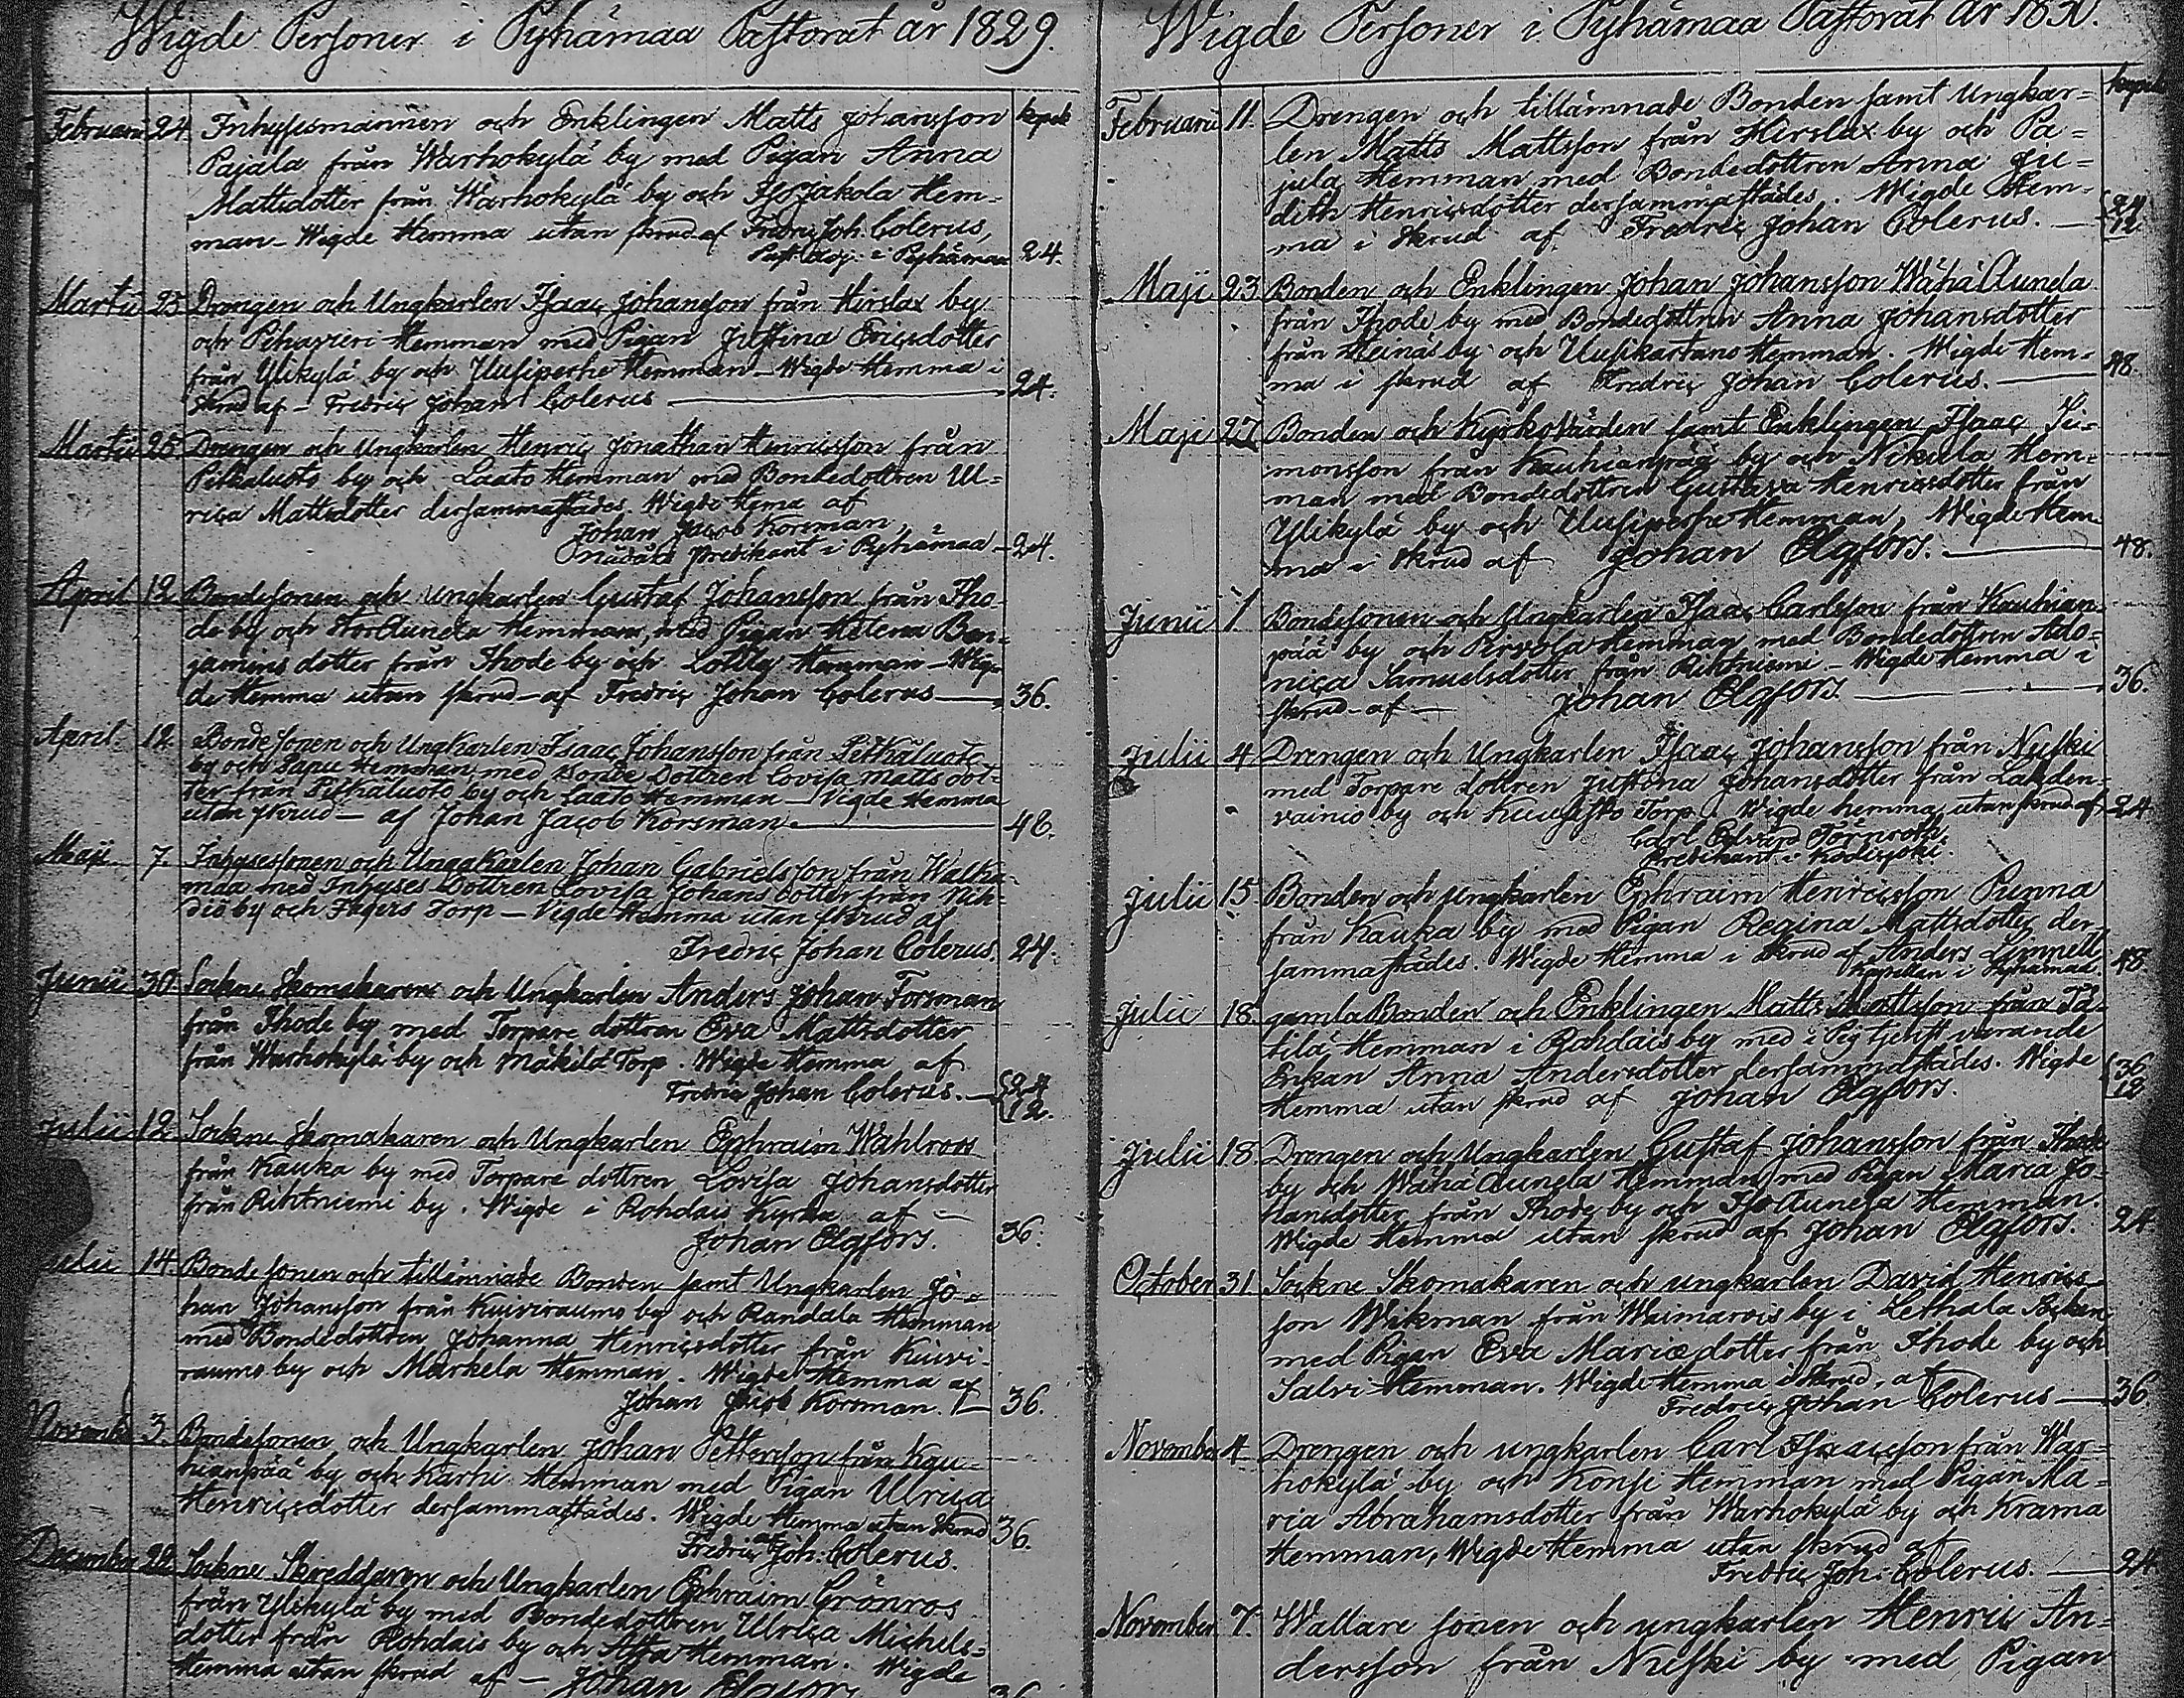 Wigde Personer i Pyhämaa Pastorat år 1829.
kopek
Februarii 24. Inhysesmannen och Enklingen Matts Johansson
Pajala från Warhokylä by med Pigan Anna
Mattsdotter från Warhokylä by och Isojakola Hem=
man – Wigde Hemma utan skrud af Fredric Joh. Colerus,
Past. Adj. i Pyhämaa 24.
Martii 25 Drengen och Ungkarlen Isaac Johansson från Hirslax by
och Pihavieri Hemman med Pigan Justina Ericsdotter
från Ylikylä by och Uusiperhe Hemman – Wigde Hemma i
skrud af – Fredric Johan Colerus — 24.
Martii 25 Drengen och Ungkarlen Henric Jonathan Henricsson från
Pitkäluoto by och Laato Hemman med Bondedottren Ul=
rica Mattsdotter dersammastädes. Wigde Hema af
Johan Jacob Korsman
Nådårs Predikant i Pyhämaa – 24.
April 12 Bondesonen och Ungkarlen Gustaf Johansson från Iho
de by och StorAunela Hemman, med Pigan Helena Ben=
jamins dotter från Ihode by och Lolila Hemman – Wig=
de Hemma utan skrud – af Fredric Johan Colerus — 36.
April 12 Bondesonen och Ungkarlen Isaac Johansson från Pitkäluoto
by och Papu Hemman med Bonde Dottren Lovisa Matts dot=
ter från Pitkäluoto by och Laato Hemman – Vigde Hemma
utan skrud – af Johan Jacob Korsman — 48.
Maji 7. Inhysessonen och Ungakarlen Johan Gabrielsson från Walka=
maa med Inhyses Dottren Lovisa Johans dotter från Nih=
diö by och Fagers Torp – Vigde Hemma utan skrud af
Fredric Johan Colerus. 24.
Junii 30. Sockne Skomakaren och Ungkarlen Anders Johan Forsman
från Ihode by med Torpare dottren Eva Mattsdotter
från Warhokylä by och Mäkilä Torp. Wigde Hemma af
Fredric Johan Colerus. — {24
{12.
Julii 12 Sockne skomakaren och Ungkarlen Ephraim Wahlroos
från Kauka by med Torpare dottren Lovisa Johansdotter
från Rihtniemi by. Wigde i Rohdais Kyrka af –
Johan Elgfors. 36.
Julii 14 Bonde sonen och tillämnade Bonden samt Ungkarlen Jo=
han Johansson från Kuiviraumo by och Randala Hemman
med Bondedottren Johanna Henricsdotter från Kuivi=
raumo by och Markela Hemman. Wigde Hemma af
Johan Jacob Korsman. — 36.
Novemb. 3. Bondesonen och Ungkarlen Johan Pettersson från Kau=
hianpää by och Karhu Hemman med Pigan Ulrica
Henricsdotter dersammastädes. Wigde Hemma utan skrud
af Fredric Joh. Colerus. 36.
December 22 Sockne Skreddaren och Ungkarlen Ephraim Grönros
från Ylikylä by med Bondedottren Ulrica Michels=
dotter från Rohdais by och Hemman. Wigde
Hemma utan skrud af – Johan Elgfors 36
Wigde Personer i Pyhämaa Pastorat år 1830.
kopek
Februarii 11. Drengen och tillämnade Bonden samt Ungkar=
len Matts Mattsson från Hirslax by och Pa=
jula Hemman med Bondedottren Anna Ju=
dith Henricsdotter dersammastädes. Wigde Hem=
ma i skrud af Fredric Johan Colerus. — {24.
{12
Maji 23 Bonden och Enklingen Johan Johansson WähäAunela
från Ihode by med Bondedottren Anna Johansdotter
från Heinäs by och Uusikartano Hemman. Wigde Hem=
ma i skrud af Fredric Johan Colerus. — 48.
Maji 27 Bonden och Kyrkovärden samt Enklingen Isaac Si=
monsson från Kauhianpää by och Nikula Hem=
man med Bondedottren Gustava Henricsdotter från
Ylikylä by och Uusiperhe Hemman, Wigde Hem=
ma i skrud af Johan Elgfors. — 48.
Junii 1 Bondesonen och Ungkarlen Isaac Carlsson från Kauhian=
pää by och Pervola Hemman med Bondedottren Ado=
nica Samuelsdotter från Rihtniemi – Wigde Hemma i
skrud – af – Johan Elgfors — 36.
Julii 4 Drengen och Ungkarlen Isaac Johansson från Nuski
med Torpare dottren Justina Johansdotter från Lahden=
vainio by och Kuusisto Torp. Wigde hemma utan skrud af 24
Carl Edvard Törnroth
Predikant i Kodisjoki.
Julii 15 Bonden och Ungkarlen Ephraim Henricsson Punna
från Kauka by med Pigan Regina Mattsdotter der=
sammastädes. Wigde Hemma i skrud af Anders Linnell
Kapellan i Pyhämaa. 48
Julii 18. gamla Bonden och Enklingen Matts Mattsson från Tä=
tilä Hemman i Rohdais by med i Pig tjenst varande
Enkan Anna Andersdotter dersammastädes. Wigde {36
Hemma utan skrud af Johan Elgfors. {12
Julii 18 Drengen och Ungkarlen Gustaf Johansson från Ihode
by och WähäAunela Hemman med Pigan Maria Jo=
hansdotter från Ihode by och IsoAunela Hemman.
Wigde Hemma utan skrud af Johan Elgfors. 24
October 31 Sockne Skomakaren och ungkarlen David Henrics=
son Wikman från Waimarois by i Lethala Socken
med Pigan Eva Mariædotter från Ihode by och
Salvi Hemman. Wigde Hemma i skrud, af
Fredric Johan Colerus — 36
November 4 Drengen och ungkarlen Carl Isaacsson från War=
hokylä by och Konsi Hemman med Pigan Ma=
ria Abrahamsdotter från Warhokylä by och Krama
Hemman, Wigde Hemma utan skrud af
Fredric Joh. Colerus. — 24
November 7. Wallare sonen och ungkarlen Henric An=
dersson från Nuski by med Pigan